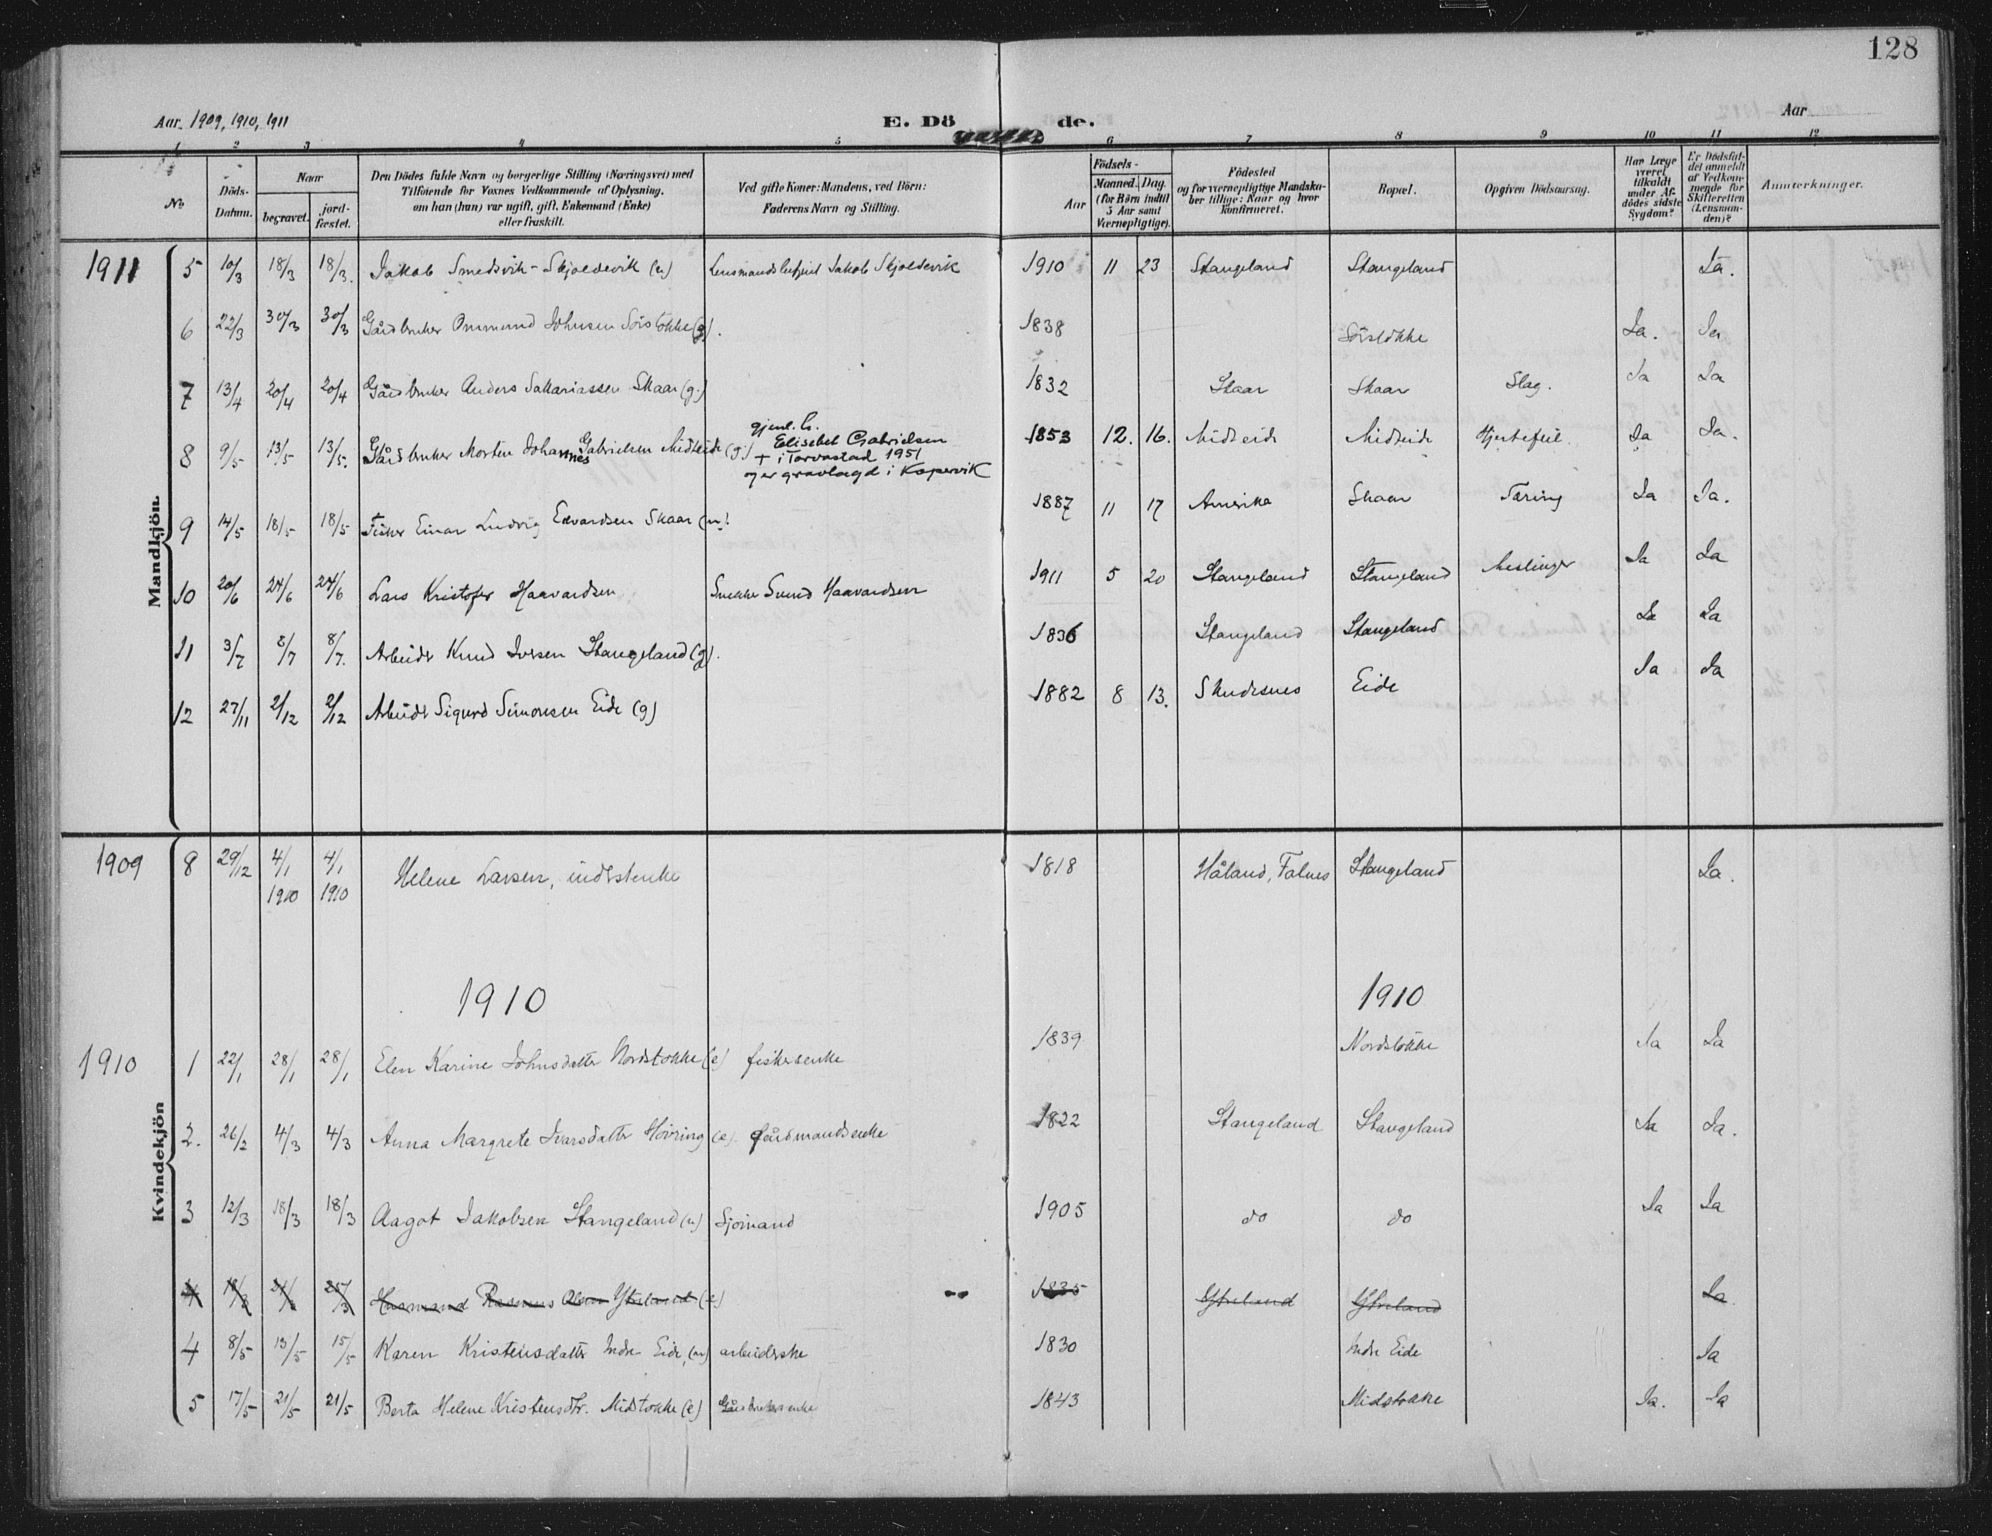 128
Aar 1909, 1910, 1911
E. Dö de.
Aar
1 2 3 4 5 6 7 8 9 10 11 12
No
Döds-Datum.
Naar
begravet.
jord-fæstet.
Den Dödes fulde Navn og borgerlige Stilling (Næringsvei) med
Tilföiende for Voxnes Vedkommende af Oplysning,
om han (hun) var ugift, gift, Enkemand (Enke)
eller fraskilt.
Ved gifte Koner: Mandens, ved Börn:
Faderens Navn og Stilling.
Födsels-
Aar
Maaned. Dag.
(for Börn indtil
5 Aar samt
Værnepligtige).
Födested
og for værnepligtige Mandska-
ber tillige: Naar og hvor
konfirmeret.
Bopæl.
Opgiven Dödsaarsag.
Har Læge
været
tilkaldt
under Af-
dödes sidste
Sygdom?
Er Dödsfal-
det anmeldt
af Vedkom-
mende for
Skifteretten
(Lensman-
den)?
Anmærkninger.
Mandkjön.
1911 5 10/3 18/3 18/3. Jakob Smedsvik-Skjoldevik (u) Jakob Skjoldevik 1910 11 23 Stangeland Stangeland Ja.
6 22/3 30/3 30/3 Gårdbruker Ommund Johnsen Sörstokke (g). 1838 Sörstokke Ja. Ja
7 13/4 20/4 20/4 Gårdbruker Anders Sakariassen Skaar (g.) 1832 Skaar Skaar Slag. Ja Ja
8 9/5 13/5 13/5. Gårdbruker Morten Johannes Gabrielsen Midteide (g.) 1853 12. 16. Midteide Midteide Hjertefeil. Ja Ja.
Elisebet Gabrielsen
+ i Torvastad 1951
og er gravlagd i Kopervik
9 14/5 18/5 18/5 Fisker Einar Ludvig Edvardsen Skaar (u). 1887 11 17 Amerika Skaar Tæring Ja Ja.
10 20/6 24/6 24/6 Lars Kristofer Haavardsen Snekker Svend Haavardsen 1911 5 20 Stangeland Stangeland Meslinger Ja Ja
11 3/7 8/7 8/7. Arbeider Knud Iversen Stangeland (g). 1836 Stangeland Stangeland Ja Ja
12 27/11 2/12 2/12 Arbeider Sigurd Simonsen Eide (g) 1882 8 13. Skudesnes Eide Ja Ja
Kvindekjön
1909 8 29/12 4/1 1910 4/1 1910 Helene Larsen, inderstenke 1818 Håland, Falnes Stangeland Ja.
1910 1910
1910 1 22/1 28/1 28/1 Elen Karine Johnsdatter Nordstokke (e) fiskerenke 1839 Nordstokke Ja Ja
2. 26/2 4/3 4/3 Anna Margrete Ivarsdatter Hövring (e). Gårdmandsenke 1822 Stangeland Stangeland Ja Ja.
3 12/3 18/3 18/3 Aagot Jakobsen Stangeland (u) Sjömand 1905 do do Ja Ja
4 18/3 25/3 Husmand Rasmus Olsen Ytreland (e) 1835 Ytreland Ytreland Ja
4 8/5 13/5 15/5 Karen Kristensdatter Indre Eide, (u) arbeiderske 1830 Indre Eide Ja
5 17/5 21/5 21/5 Berta Helene Kristensdtr. Midstokke (e) Gårdbrukerenke 1843 Midstokke Ja. Ja